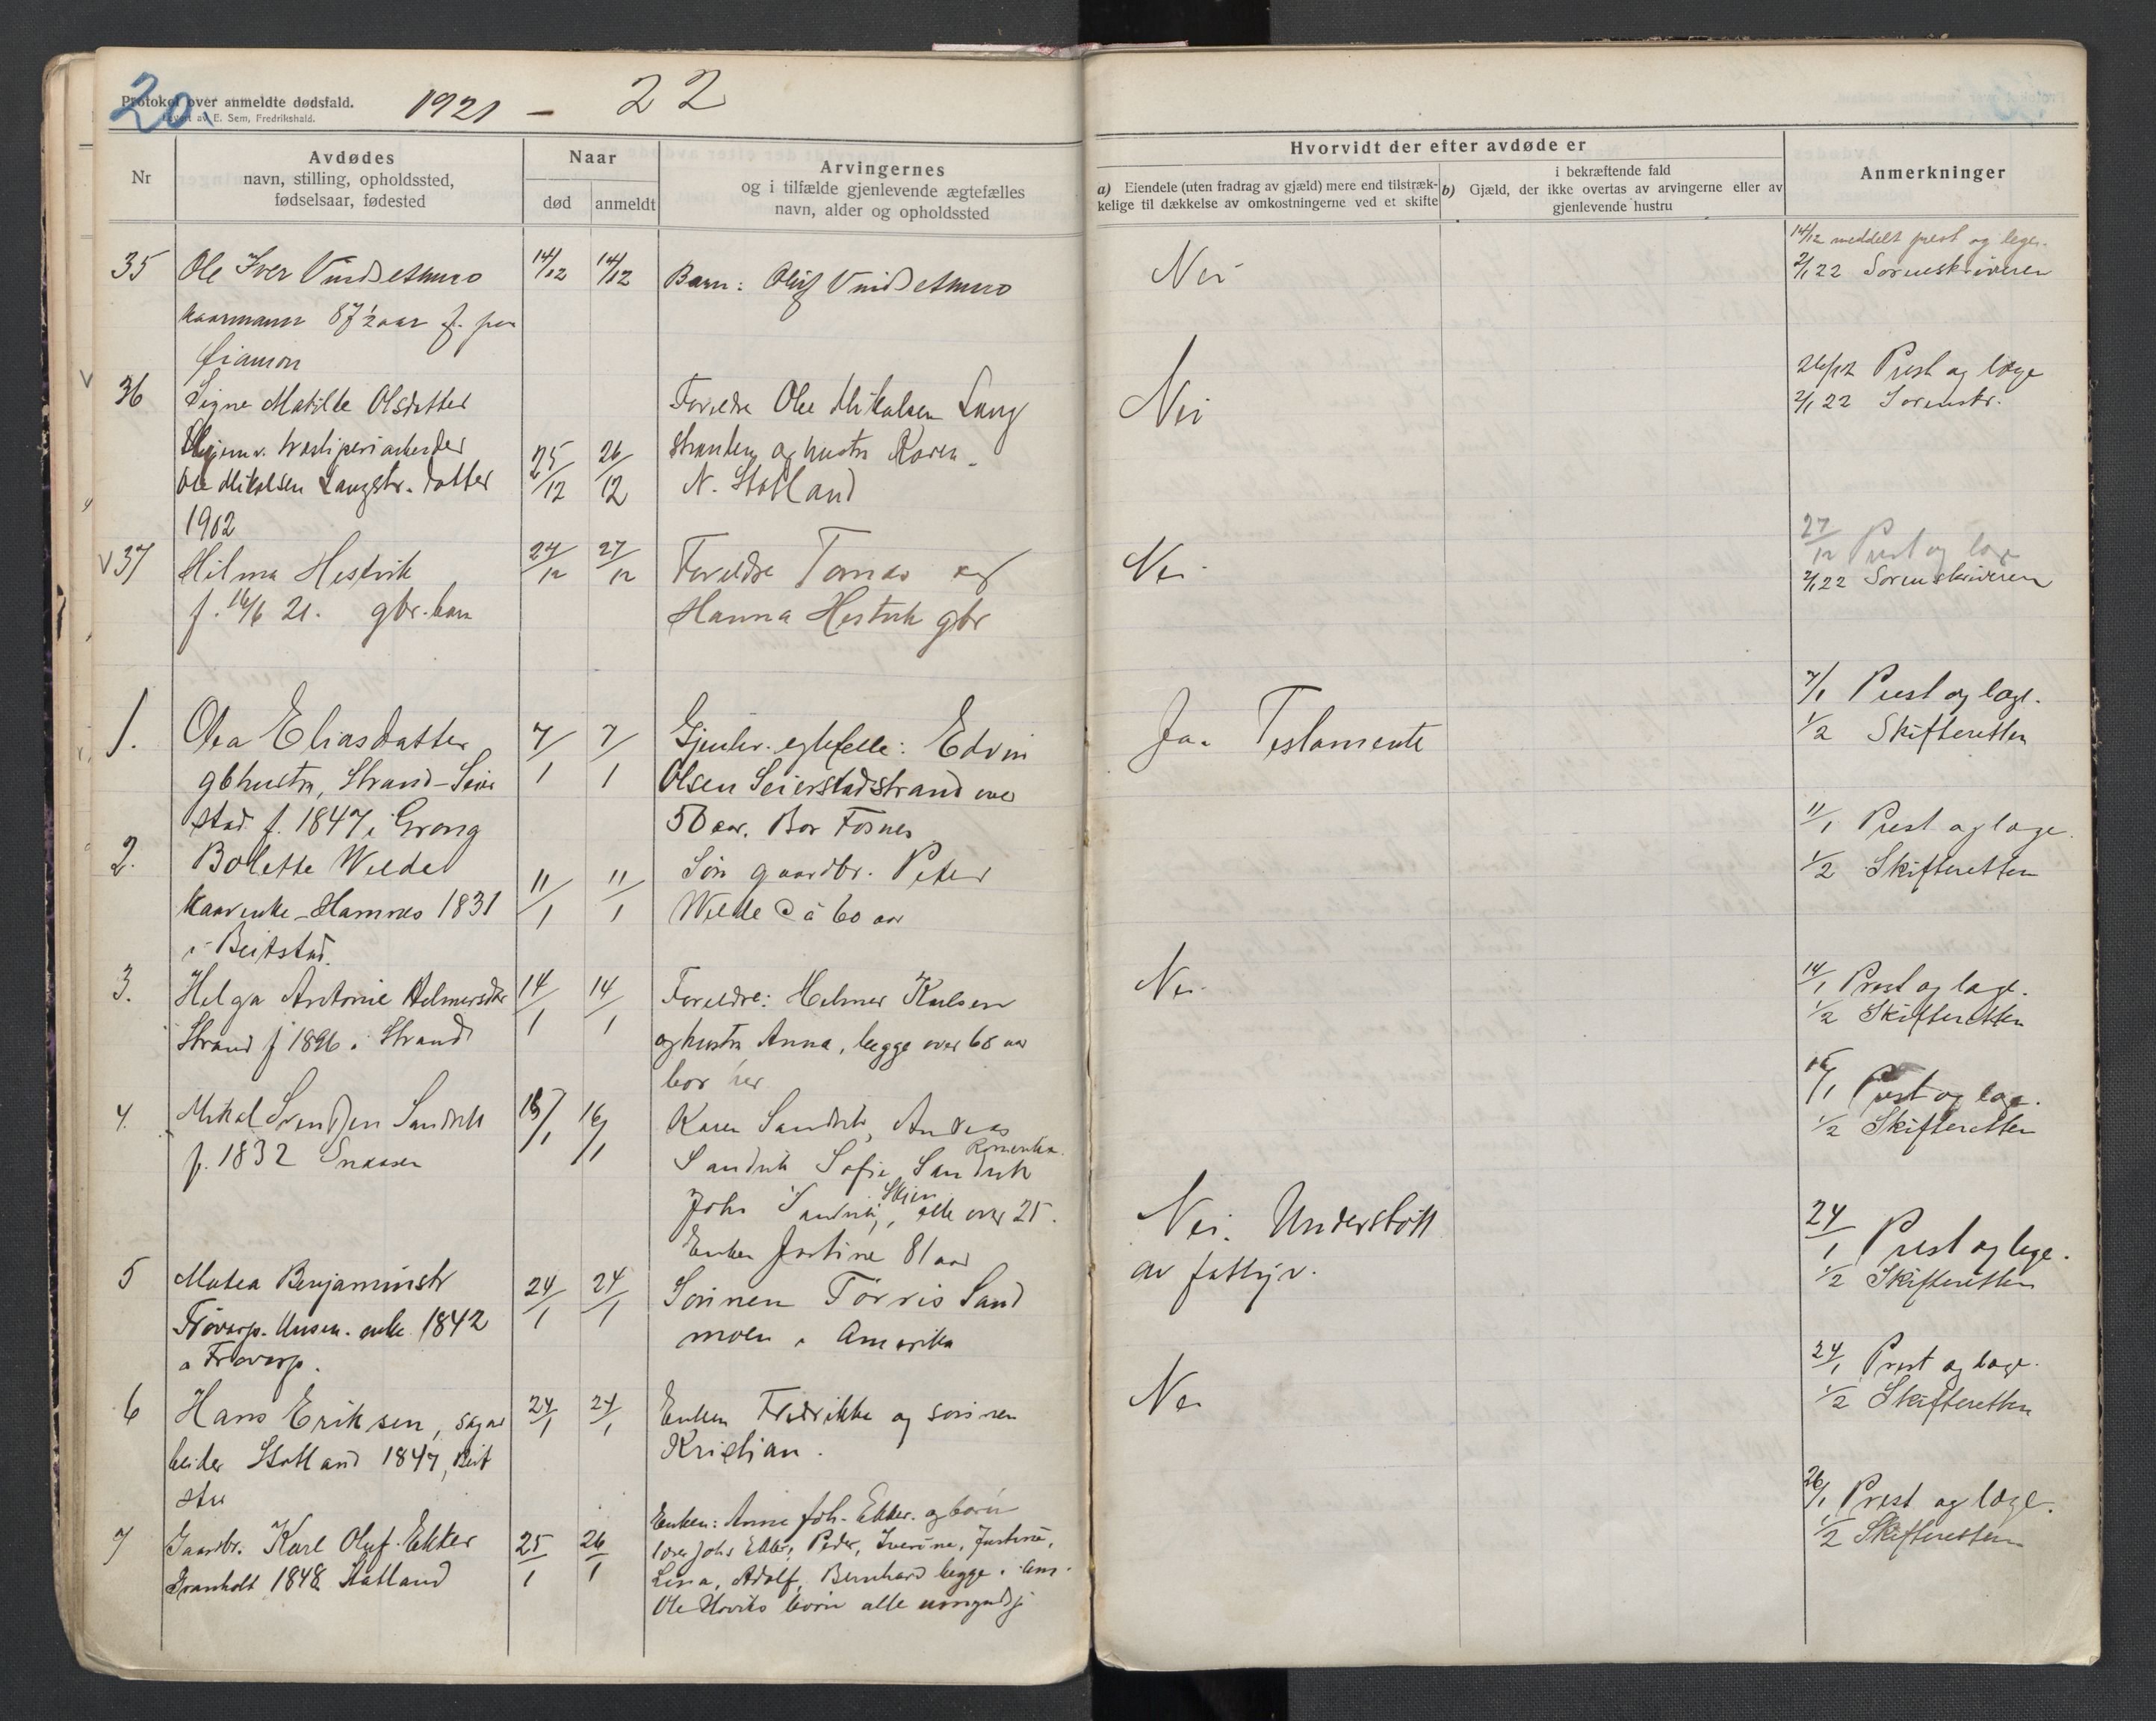 20.
Protokol over anmeldte dødsfald.
Levert av E. Sem, Fredrikshald.
1921 - 22
Nr
Avdødes
navn, stilling, opholdssted,
fødselsaar, fødested
Naar
død
anmeldt
Arvingernes
og i tilfælde gjenlevende ægtefælles
navn, alder og opholdssted
Hvorvidt der efter avdøde er
a) Eiendele (uten fradrag av gjæld) mere end tilstræk-
kelige til dækkelse av omkostningerne ved et skifte
i bekræftende fald
b) Gjæld, der ikke overtas av arvingerne eller av
gjenlevende hustru
Anmerkninger
35 Ole Iver
kaarmann 87½ aar f. paa
14/12 14/12
Barn: Oluf
Nei
14/12 meddelt prest og læge.
2/1 22 Sorenskriveren
36 Signe Matilde Olsdatter
Ole Mikalsen Langstr. datter
1902
25/12 26/12
Foreldre Ole Mikalsen Lang
stranden og hustru Karen
N. Statland
Nei
26/12 Prest og læge
2/1 22 Sorenskr.
V 37 Hilma Hestvik
f. 16/6 21. gbr. barn
24/12 27/12
Foreldre Tomas og
Hanna Hestvik gbr
Nei
27/12 Prest og læge
2/1 22 Sorenskriveren
1. Olea Eliasdatter
gbhustru, Strand-Seier
stad f. 1847 i Grong
7/1 7/1
Gjenlev. egtefelle: Edvin
Olsen Seierstadstrand over
50 aar. Bor Fosnes
Ja. Testamente
7/1 Prest og læge.
1/2 Skifteretten
2. Bolette Welde
kaarenke Hamnes 1831
i Beitstad.
11/1 11/1
Søn gaardbr. Peter
Welde Ca 60 aar
11/1 Prest og læge.
1/2 Skifteretten
3. Helga Antonie Helmersdtr
Strand f 1896 i Strand
14/1 14/1
Foreldre: Helmer Karlsen
og hustru Anna, begge over 60 aar
bor her
Nei
14/1 Prest og læge.
1/2 Skifteretten
4. Mikal Svendsen Sandvik
f. 1832 Snaasen
15/1 16/1
Karen Sandvik, Andreas
Sandvik Sofie Sandvik
Johs Sandvik, Skjen, alle over 25.
Enken Justine 81 aar
16/1 Prest og læge.
1/2 Skifteretten
5 Matea Benjaminsdtr
enke 1842
24/1 24/1
Sønnen Tørris Sand
moen i Amerika
Nei. Understøtt
av fattigv.
24/1 Prest og læge.
1/2 Skifteretten
6 Hans Eriksen, sagar
beider Statland 1847, Beit
stad
24/1 24/1
Enken Fredrikke og sønnen
Kristian.
Nei
24/1 Prest og læge.
1/2 Skifteretten
7 Gaardbr. Karl Oluf Ekker
Granholt 1848 Statland
25/1 26/1
Enken: Anne Joh. Ekker. og børn
Johs Ekker, Peder, Iverine, Justine,
Lina, Adolf, Bernhard begge i Am.
Ole Hoviks børn alle umyndj
26/1 Prest og læge.
1/2 Skifteretten